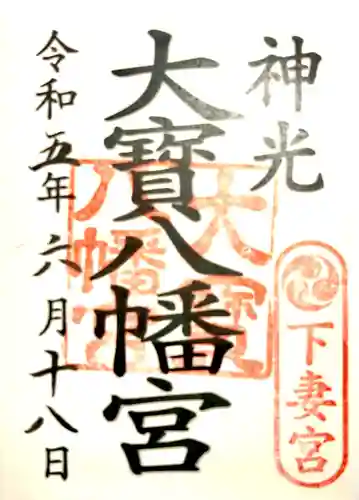 神光
下妻宮
大寶八幡宮
大寶八幡宮
令和五年六月十八日